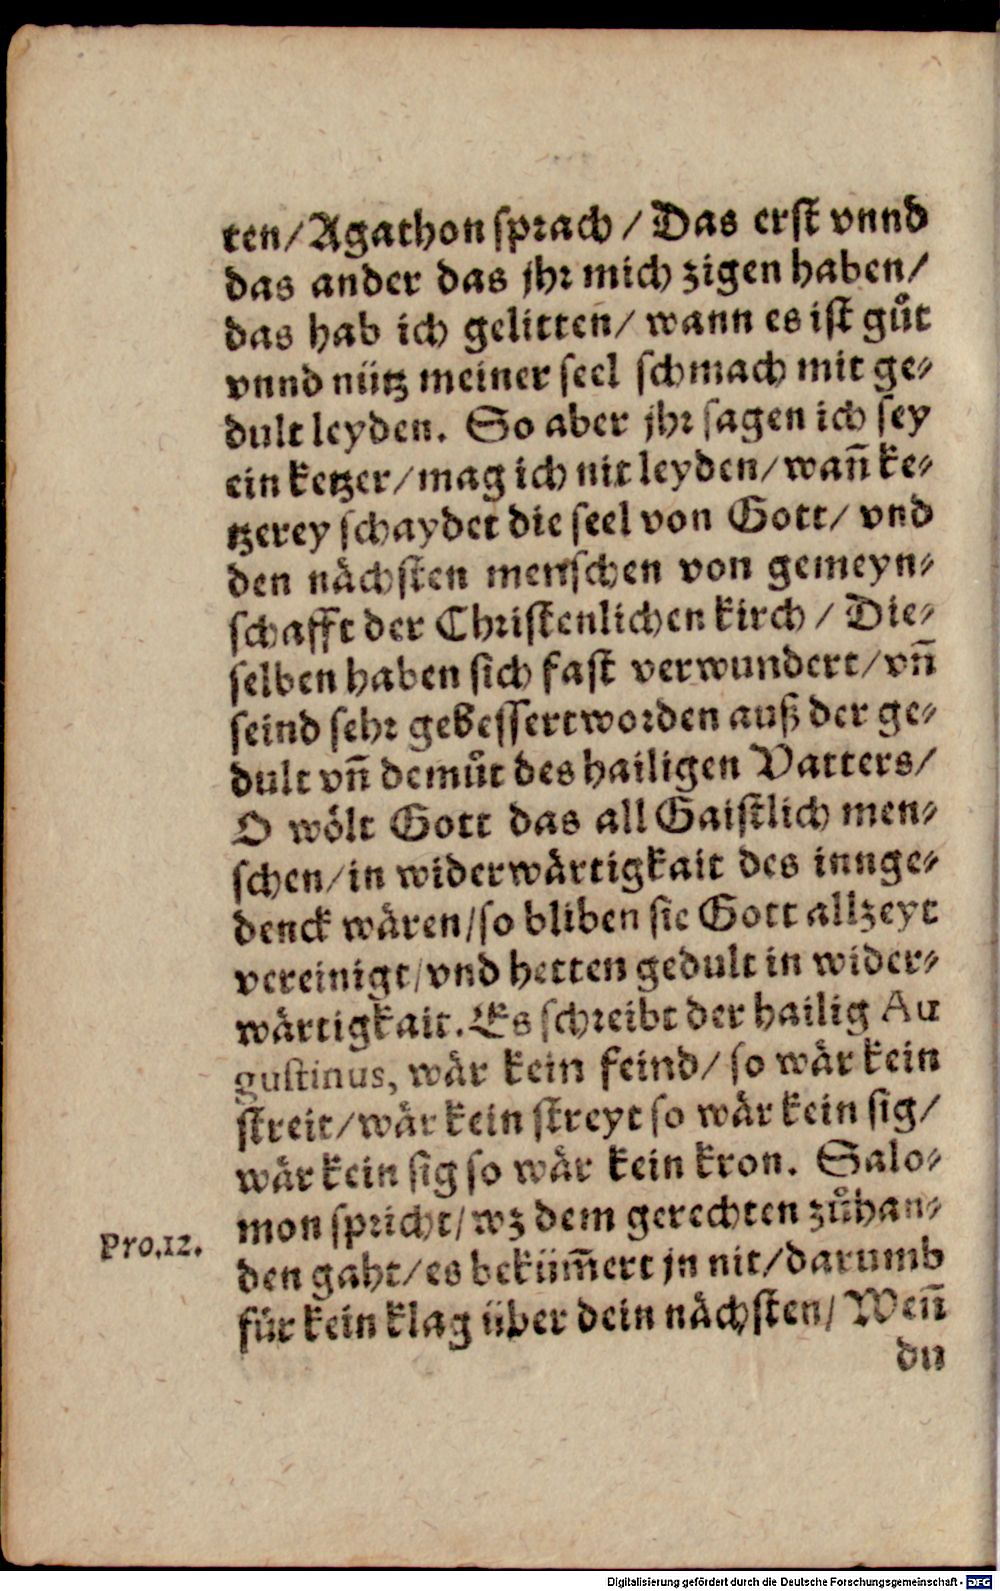 ten/Agathon sprach / Das erst vnnd
das ander das jhr mich zigen haben/
das hab ich gelitten/ wann es ist gůt
vnnd nütz meiner seel schmach mit ge⸗
dult leyden. So aber jhr sagen ich sey
ein ketzer/mag ich nit leyden/wañ ke⸗
tzerey schaydet die seel von Gott/ vnd
den nächsten menschen von gemeyn⸗
schafft der Christenlichen kirch / Die⸗
selben haben sich fast verwundert/vñ
seind sehr gebessert worden auß der ge⸗
dult vñ demůt des hailigen Vatters/
O wölt Gott das all Gaistlich men⸗
schen/in widerwärtigkait des innge⸗
denck wären/so bliben sie Gott allzeyt
vereinigt/vnd hetten gedult in wider⸗
wärtigkait. Es schreibt der hailig Au
gustinus, wär kein feind/ so wär kein
streit/wär kein streyt so wär kein sig/
wär kein sig so wär kein kron. Salo⸗
mon spricht/wz dem gerechten zůhan⸗
Pro.12.
den gaht/es beküm̄ert jn nit/darumb
für kein klag über dein nächsten/ Weñ
du
Digitalisierung gefördert durch die Deutsche Forschungsgemeinschaft - DFG